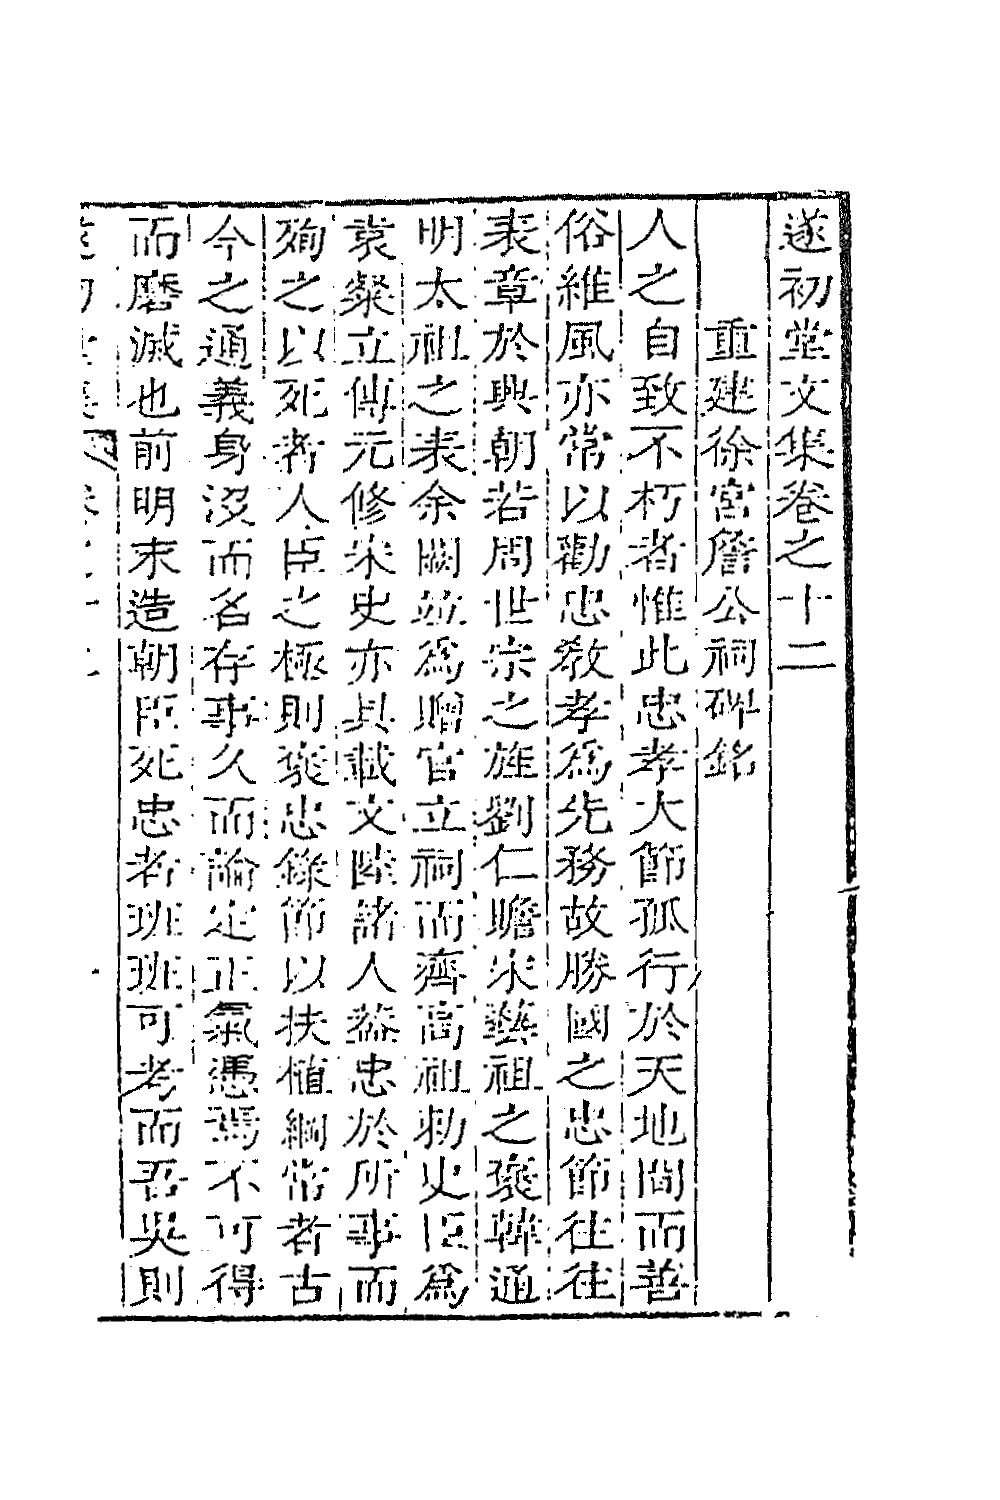 遂初堂文集卷之十二
重建徐宮詹公祠碑銘
人之自致不朽者惟此忠孝大節孤行於天地間而善
俗維風亦常以勸忠敎孝爲先務故勝國之忠節往往
表章於興朝若周世宗之旌劉仁瞻宋藝祖之褒韓通
明太祖之表余闕並爲贈官立祠而齊高祖勅史臣爲
袁粲立傳元修宋史亦具載文陸諸人葢忠於所事而
殉之以死者人臣之極則褒忠錄節以扶植綱常者古
今之通義身沒而名存事久而論定正氣憑焉不可得
而磨滅也前明末造朝臣死忠者班班可考而吾吳則